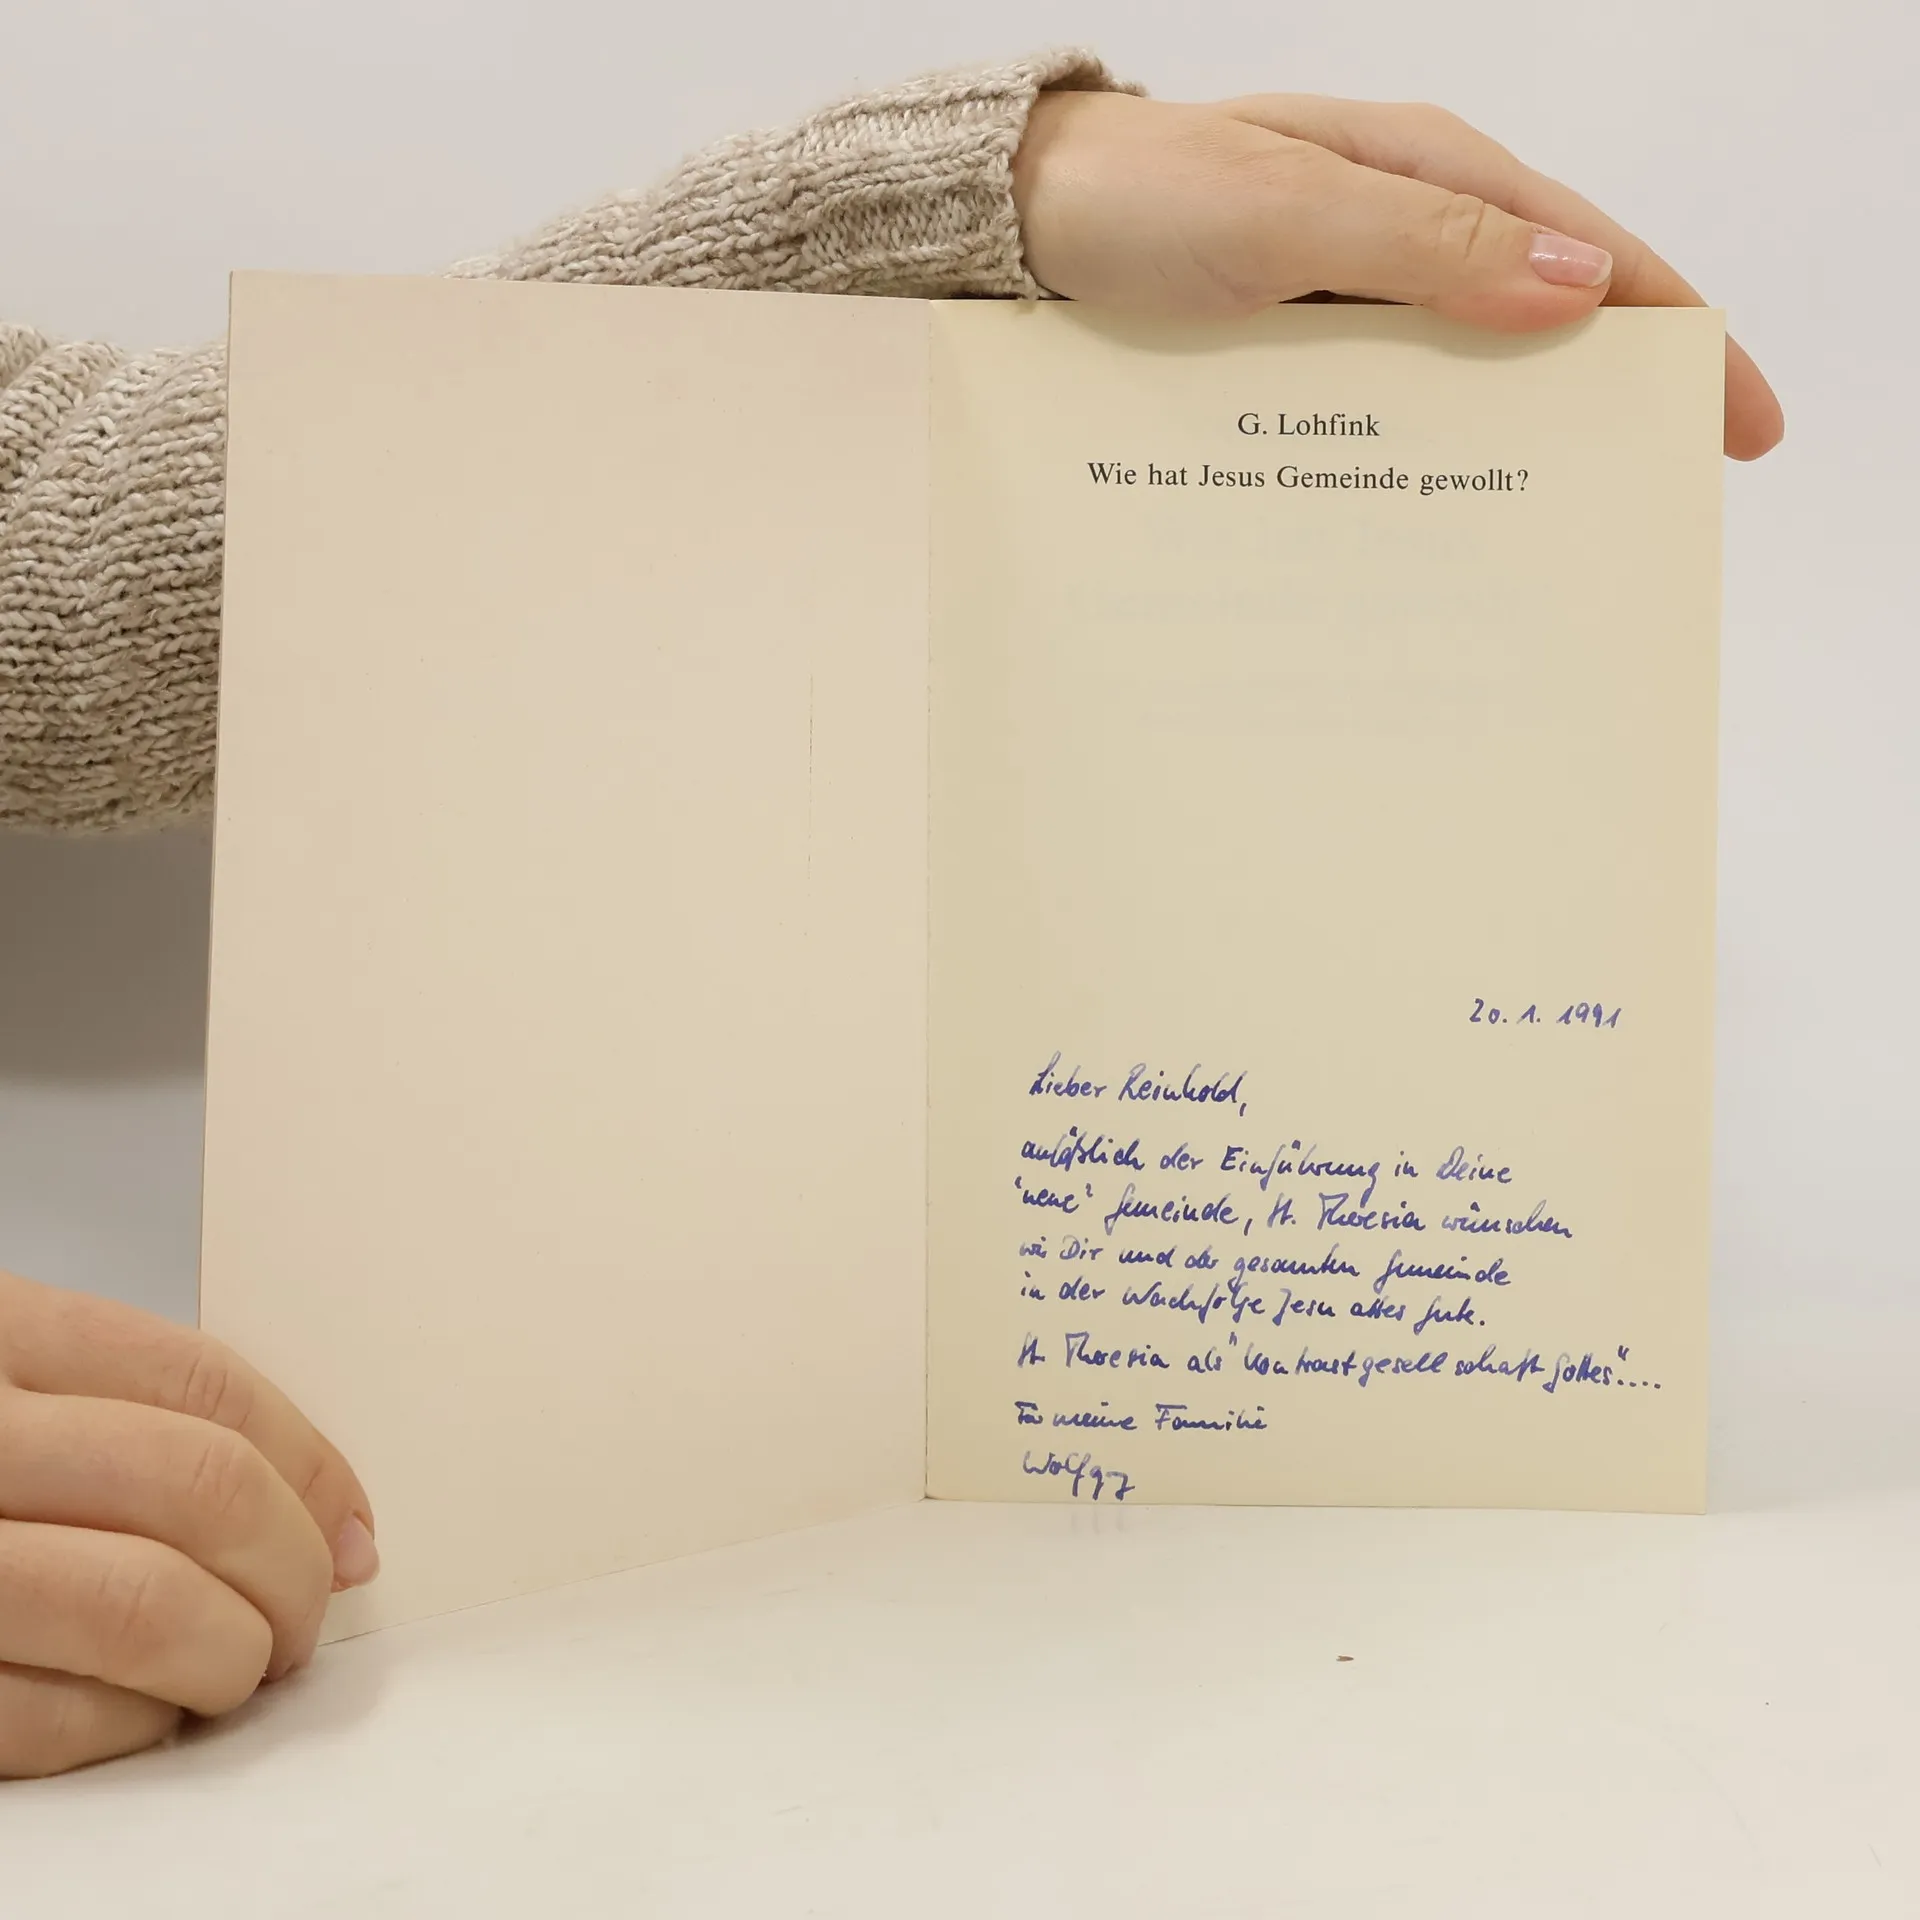 G. Lohfink
Wie hat Jesus Gemeinde gewollt?
20. 1. 1991
Lieber Reinhold,
anläßlich der Einführung in Deine
"neue" Gemeinde, St. Theresia wünschen
wir Dir und der gesamten Gemeinde
in der Nachfolge Jesu alles Gute.
St. Theresia als "Kontrastgesellschaft Gottes"....
Für meine Familie
Wolfgg